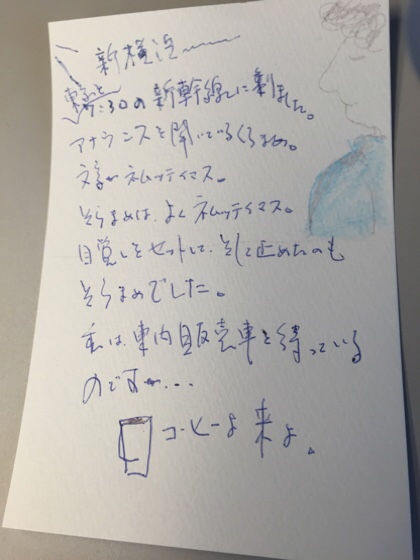 新横浜
東京を
7:30の新幹線に剰ました。
アナウンスを聞いているくるまめ。
文京がネムッティマス。
そらまめは、よくネムッティマス。
目覚しをセットして、そして止めたのも
そらまめでした。
私は、車内自販売車を待っている
のですが...
コーヒーよ来よ。